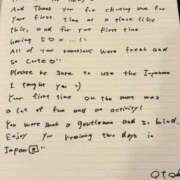 And thank you for choosing me for
your first time at a place like
this, and for your first time
having
All of your reactions were fresh and
so cute
Please be sure to use the Japanese
I taught you :)
Your first time on the was
a lot of fun and an activity!
You were such a gentleman and so kind.
Enjoy your remaining two days in
Japan